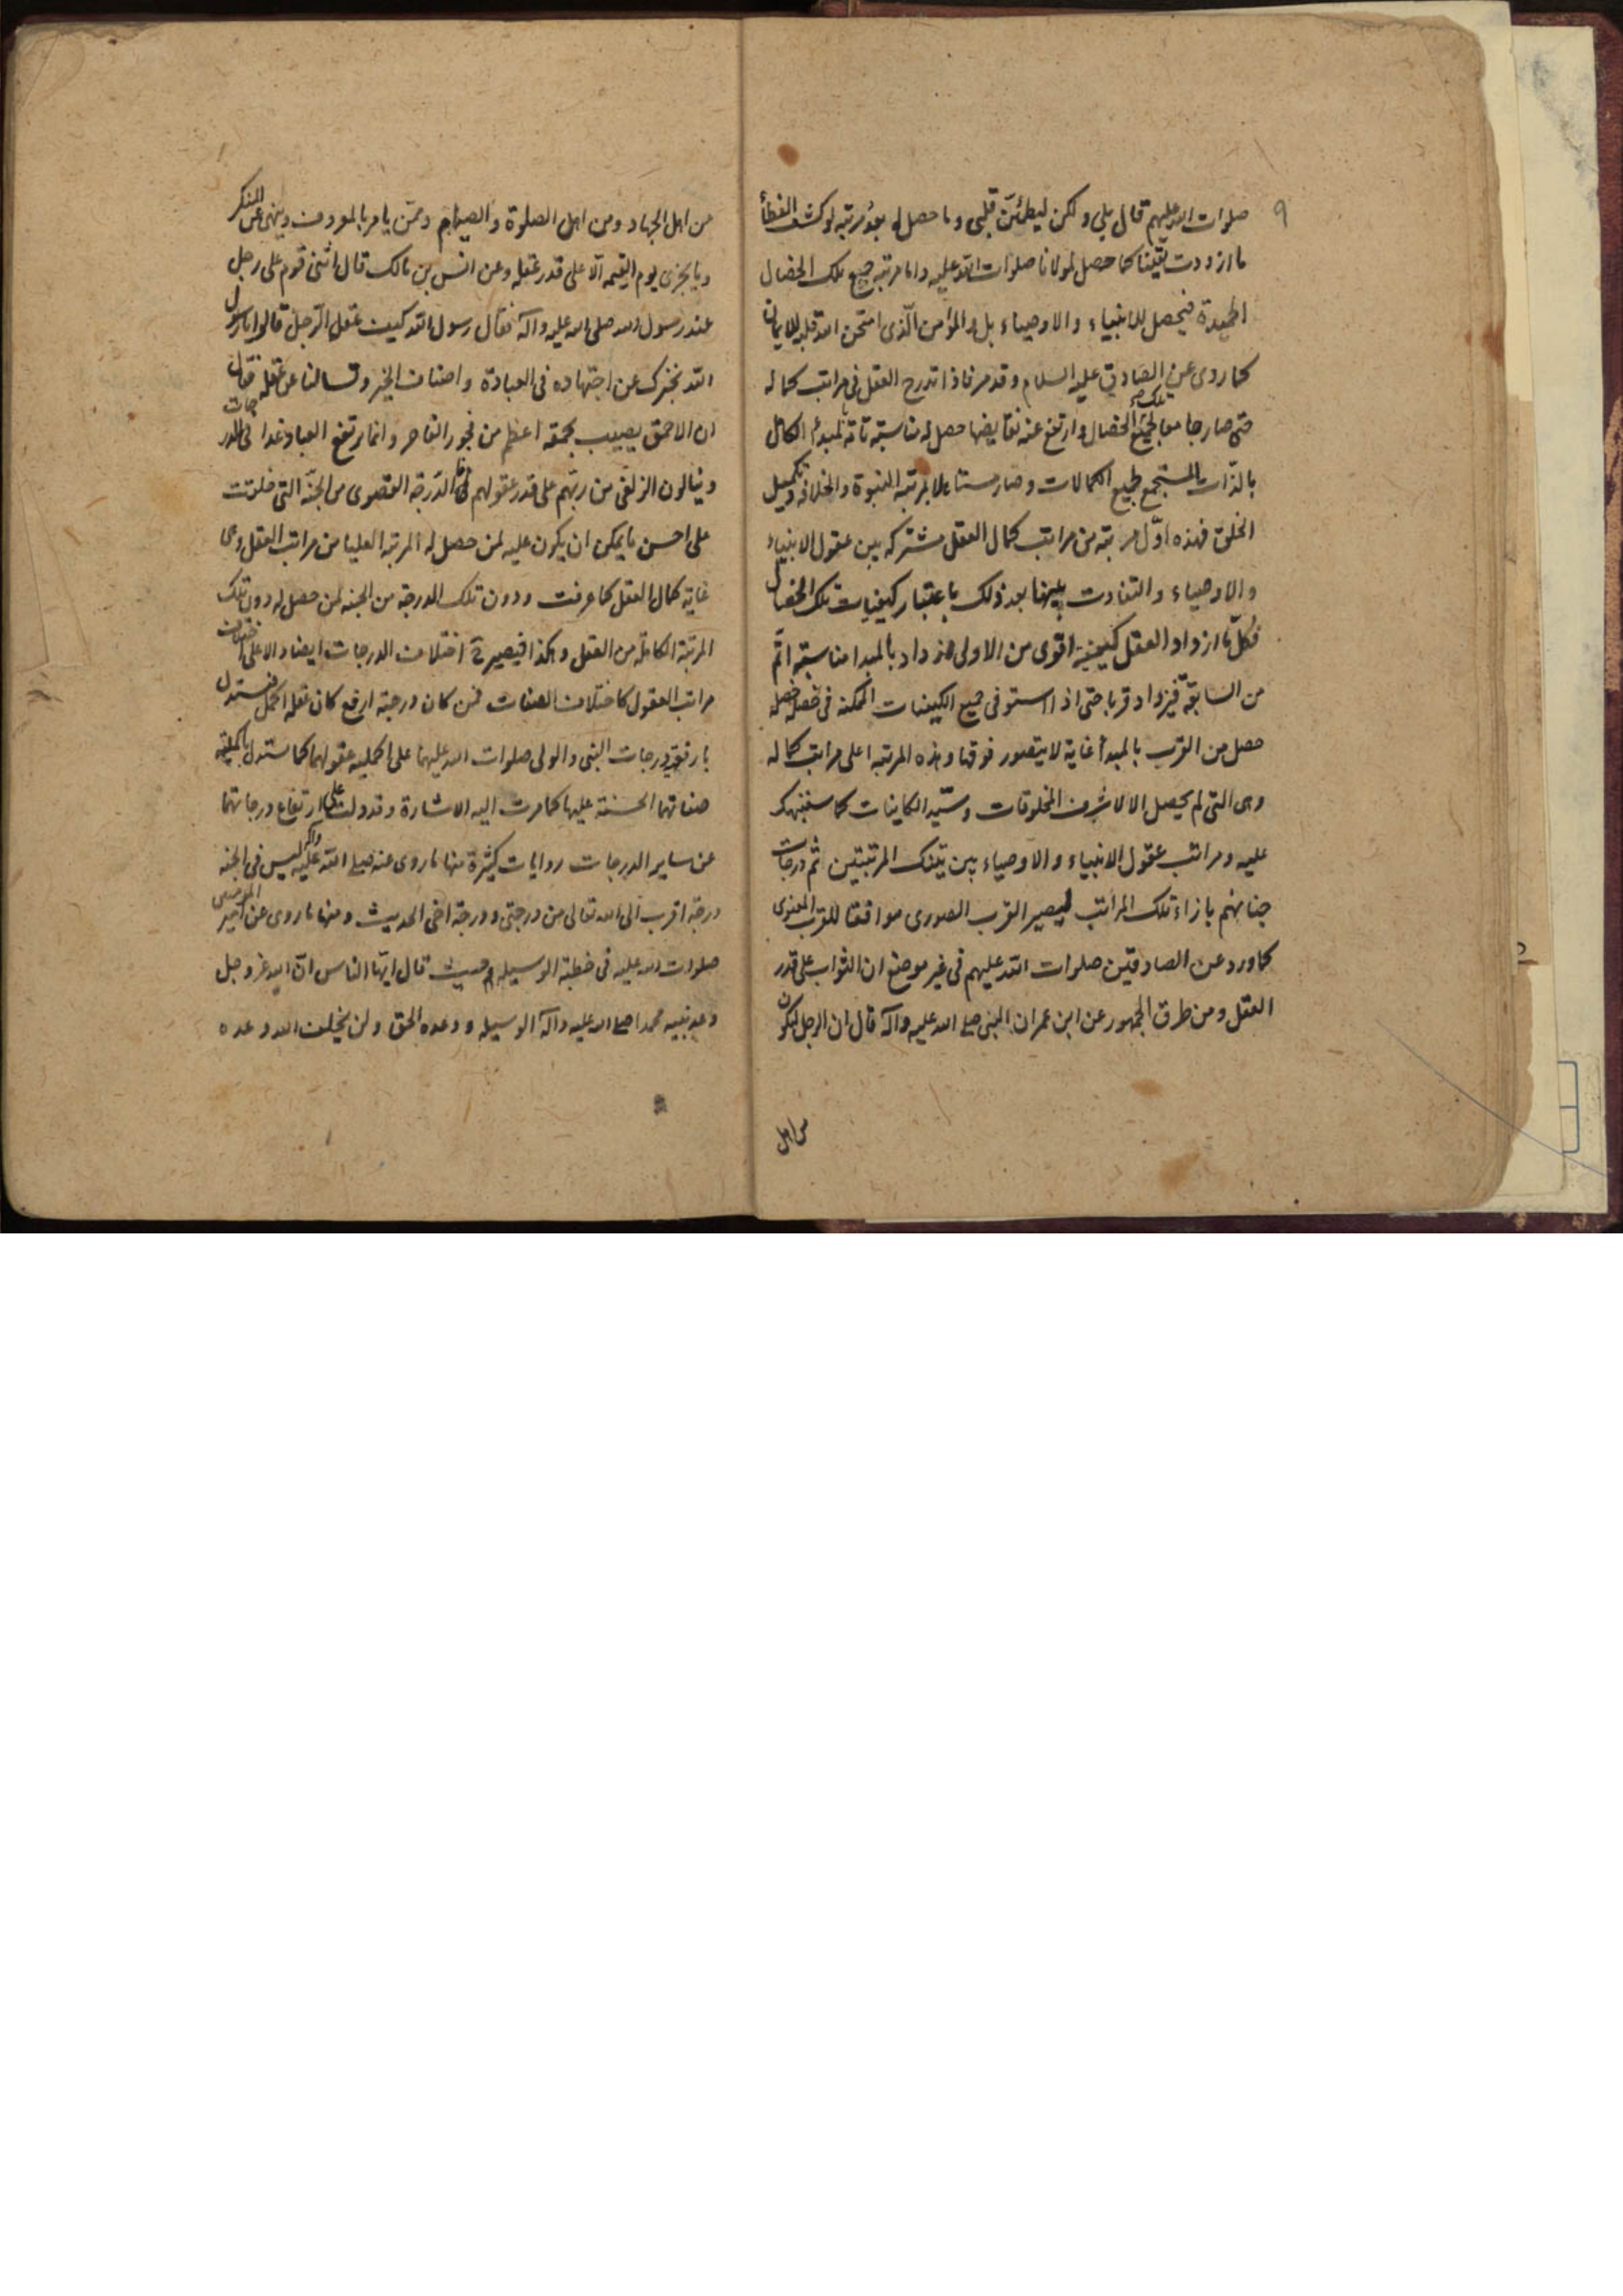 ٩
صلوات الله عليهم قال بلى ولكن ليطمئن قلبى وما حصل له بعد مرتبه لو كشف الغطأ
ما ازددت يقينا كما حصل لمولانا صلوات الله عليه واما مرتبه جميع تلك الخصال
الحميدة فيحصل للانبياء والاوصياء بل للمؤمن الّذى امتحن الله قلبه للايمان
كما روى عن الصادق عليه السلام وقد مر فاذا تدرج العقل فى مراتب كماله
حتى صار جامعا لجميع تلك الخصال وارتفع عنه نقايضها حصل له مناسبته تامّة لمبدئه الكامل
بالذات المستجمع لجميع الكمالات وصار مستاهلا لمرتبه النبوة والخلافه وتكميل
الخلق فهذه اوّل مرتبته من مراتب كمال العقل مشتركه بين عقول الانبياء
والاوصياء والتفاوت بينها بعد ذلك باعتبار كيفيات تلك الخصال
فكلّما ازداد العقل كيفيه اقوى من الاولى ازداد بالمبدا مناسبته اتم
من السابقة فيزداد قربا حتى اذا استوفى جميع الكيفيات الممكنه فى خصله خصله
حصل من القرب بالمبدأ غاية لا يتصور فوقها وهذه المرتبه اعلى مراتب كماله
وهى التى لم يحصل الا لاشرف المخلوقات وسيّد الكاينات كما سننبهك
عليه ومراتب عقول الانبياء والاوصياء بين تينك المرتبتين ثم درجات
جنانهم بازاء تلك المراتب ليصير القرب الصورى موافقا للقرب المعنوى
كما ورد عن الصادقين صلوات الله عليهم فى غير موضع ان الثواب على قدر
العقل ومن طرق الجمهور عن ابن عمران النبى صلى الله عليه وآله قال ان الرجل ليكون
من اهل
من اهل الجهاد ومن اهل الصلوة والصيام وممّن يامر بالمعروف وينهى عن المنكر
وما يجزى يوم القيمه الّا على قدر عقله وعن انس بن مالك قال اثنى قوم على رجل
عند رسول الله صلى الله عليه وآله فقال رسول الله كيف عقل الرّجل قالوا يا رسول
الله نخبرك عن اجتهاده فى العبادة واصناف الخير وتسالنا عن عقله فقال
ان الاحمق يصيب بحمقه اعظم من فجور الفاجر وانما يرتفع العباد غدا فى الدرجات
وينالون الزلفى من ربّهم على قدر عقولهم فاذا الدّرجة القصوى من الجنّة التى خلقت
على احسن ما يمكن ان يكون عليه لمن حصل له المرتبه العليا من مراتب العقل وهى
غاية كمال العقل كما عرفت ودون تلك الدرجة من الجنه لمن حصل له دون تلك
المرتبة الكاملة من العقل وهكذا فيصير ح اختلاف الدرجات ايضا دالا على اختلاف
مراتب العقول كاختلاف الصفات فمن كان درجته ارفع كان عقله اكمل فنستدل
بارفعية درجات النبى والولى صلوات الله عليهما على اكمليه عقولهما كما ستدل باكمليّة
صفاتهما الحسنة عليها كما مرت اليه الاشارة وقد دلت على ارتفاع درجاتهما
عن ساير الدرجات روايات كثيرة منها ما روى عنه صلى الله عليه وآله ليس فى الجنه
درجة اقرب الى الله تعالى من درجتى ودرجة اخى الحديث ومنها ما روى عن امير المومنين
صلوات الله عليه فى خطبة الوسيله حيث قال ايّها الناس انّ الله عز وجل
وعد نبيه محمدا صلى الله عليه وآله الوسيله ووعده الحق ولن يخلف الله وعده